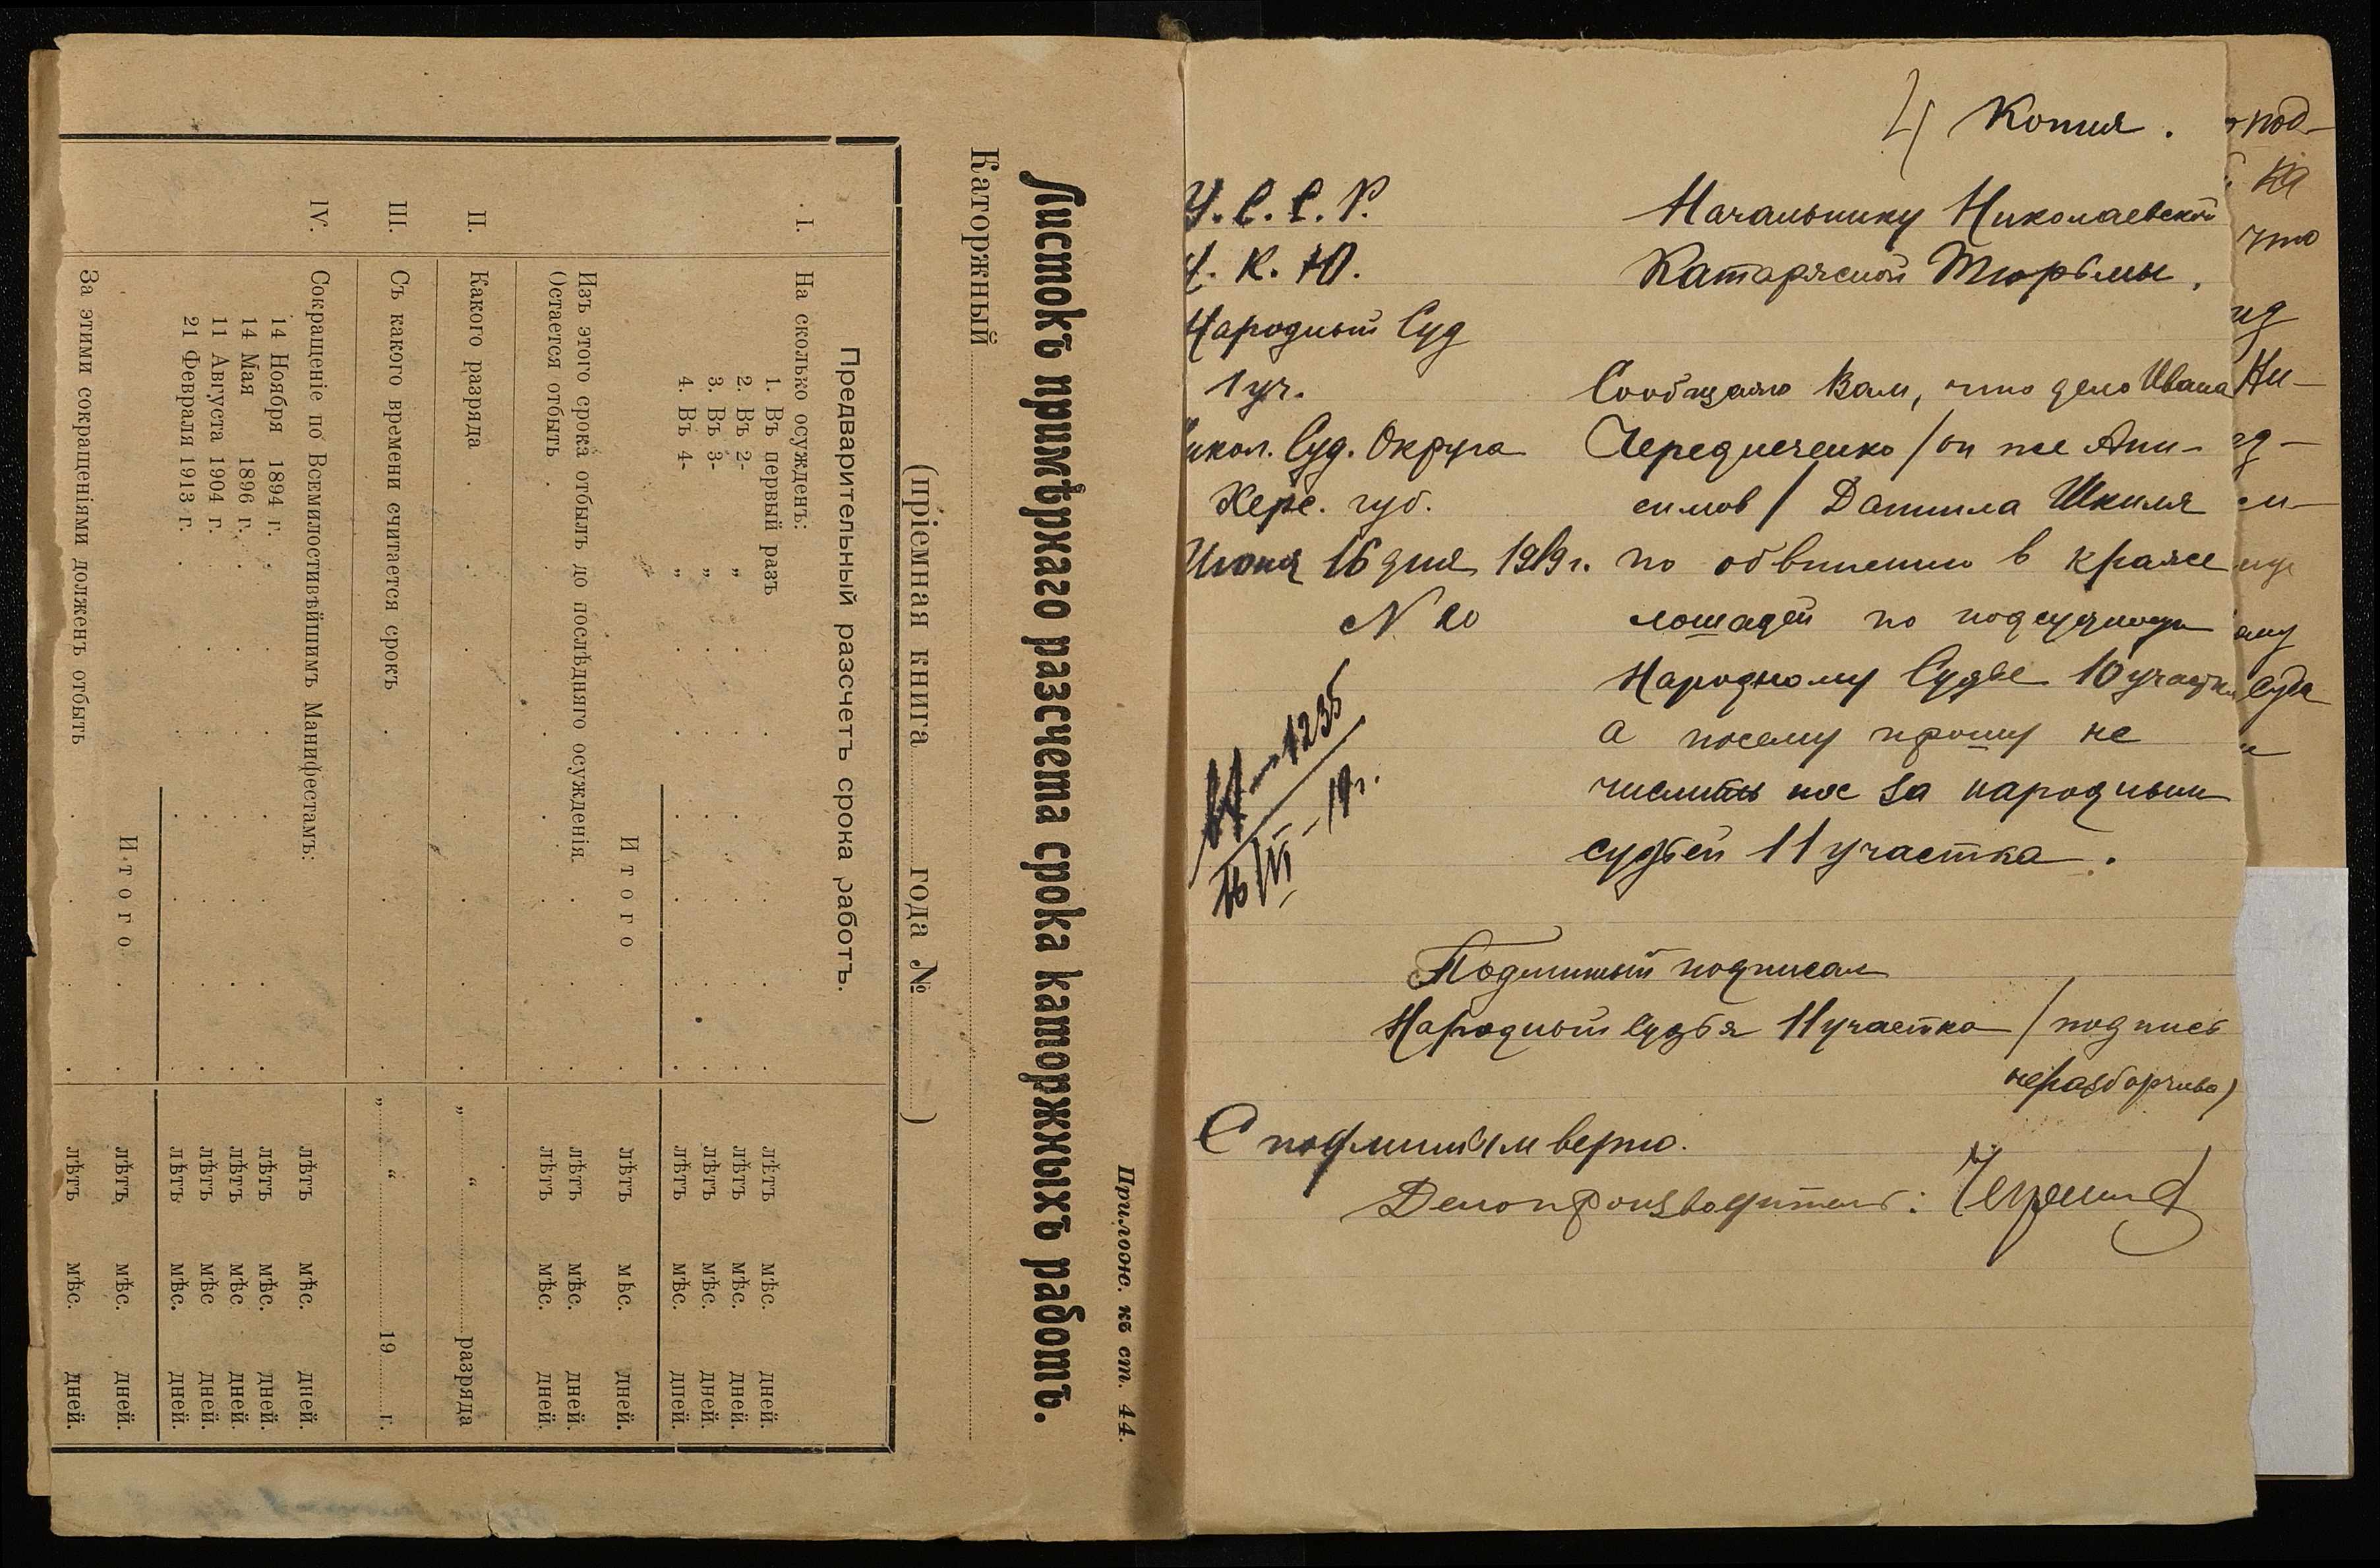 Прилож. къ ст. 44.
Листокъ примѣрнаго разсчета срока каторжныхъ работъ.
Каторжный
(пріемная книга года № )
Предварительный разсчетъ срока работъ.
I. На сколько осужденъ:
1. Въ первый разъ лѣтъ мѣс. дней.
2. Въ 2- „ лѣтъ мѣс. дней.
3. Въ 3- „ лѣтъ мѣс. дней.
4. Въ 4- „ лѣтъ мѣс. дней.
Итого лѣтъ мѣс. дней.
Изъ этого срока отбылъ до послѣдняго осужденія лѣтъ мѣс. дней.
Остается отбыть лѣтъ мѣс. дней.
II. Какого разряда „ “ разряда
III. Съ какого времени считается срокъ „ “ 19 г.
IV. Сокращеніе по Всемилостивѣйшимъ Манифестамъ: лѣтъ мѣс. дней.
14 Ноября 1894 г. лѣтъ мѣс. дней.
14 Мая 1896 г. лѣтъ мѣс. дней.
11 Августа 1904 г. лѣтъ мѣс. дней.
21 Февраля 1913 г. лѣтъ мѣс. дней.
Итого лѣтъ мѣс. дней.
За этими сокращеніями долженъ отбыть лѣтъ мѣс. дней.
4 Копия.
У. С. С. Р.
К. Ю.
Народный Суд
1 уч.
Суд. Округа
Херс. губ.
Июня 16 дня 1919 г.
N 20
16/VI-19 г.
Начальнику Николаевской
Катаржной Тюрьмы.
Сообщаю Вам, что дело Ивана
Чередниченко / он же Ани-
симов / Данила Шкиля
по обвинению в краже
лошадей по подсудности
Народному Судье 10 участка
а посему прошу не
числить за народным
судьей 11 участка.
Подлинный подписал
Народный Судья 11 участка / подпись
неразборчива)
С подлинным верно.
Делопроизводитель:
под-
ка
что
Ни-
Суда